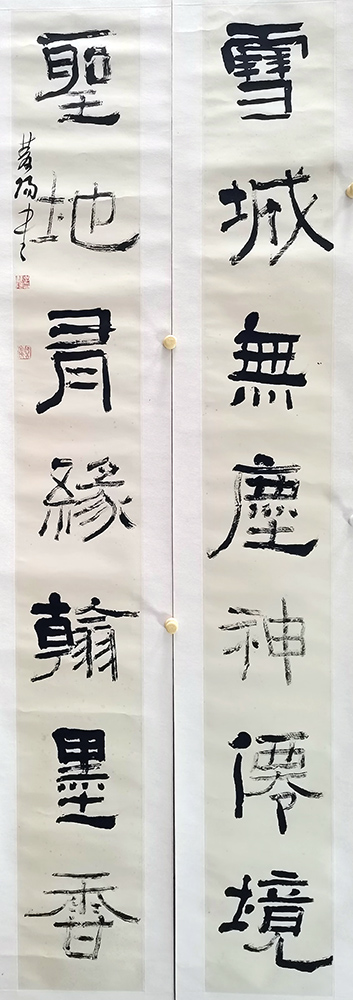 雪城無塵神僊境
聖地有緣翰墨香